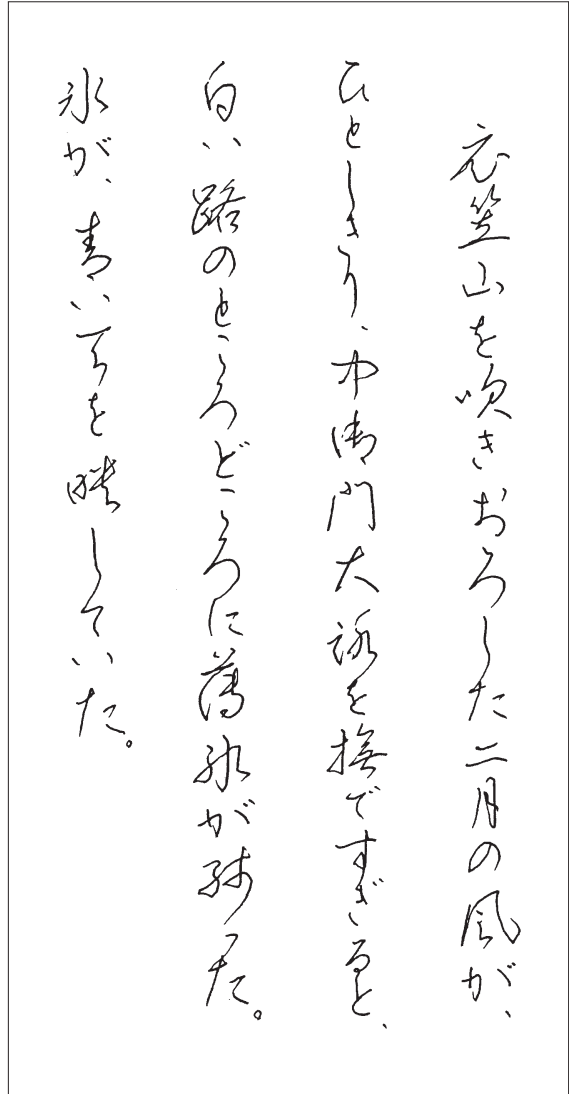 衣笠山を吹きおろした二月の風が、
ひとしきり、中御門大路を撫ですぎると、
白い路のところどころに薄氷が残った。
氷が、青い空を映していた。